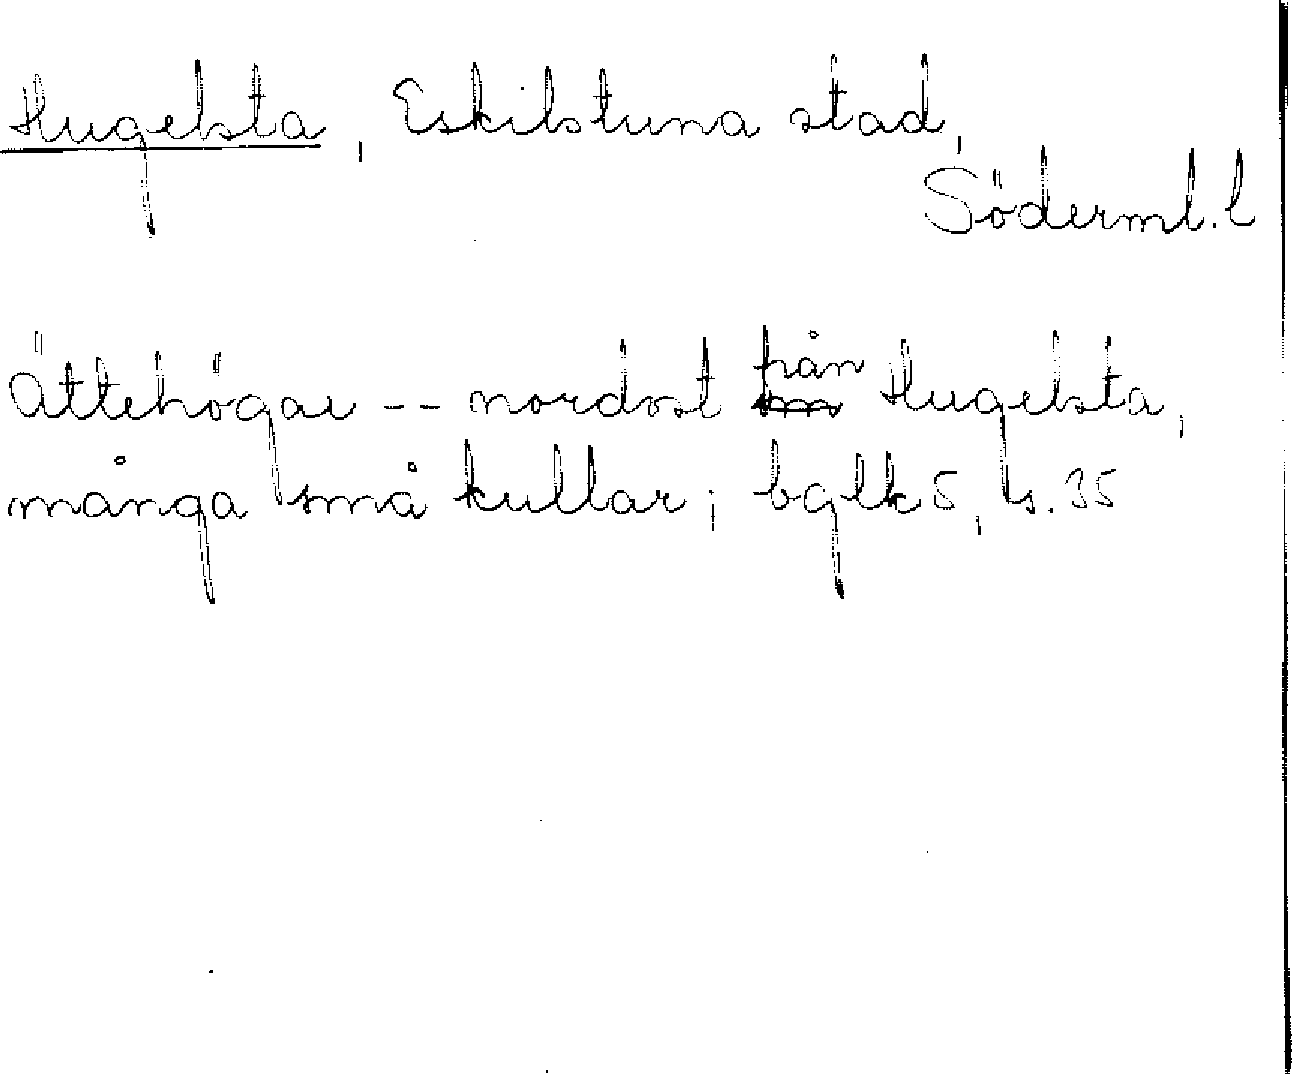 Hugelsta, Eskilstuna stad,
Söderml. l
Ättehögar -- nordost från om Hugelsta,
många små kullar; bglk 5, s. 35